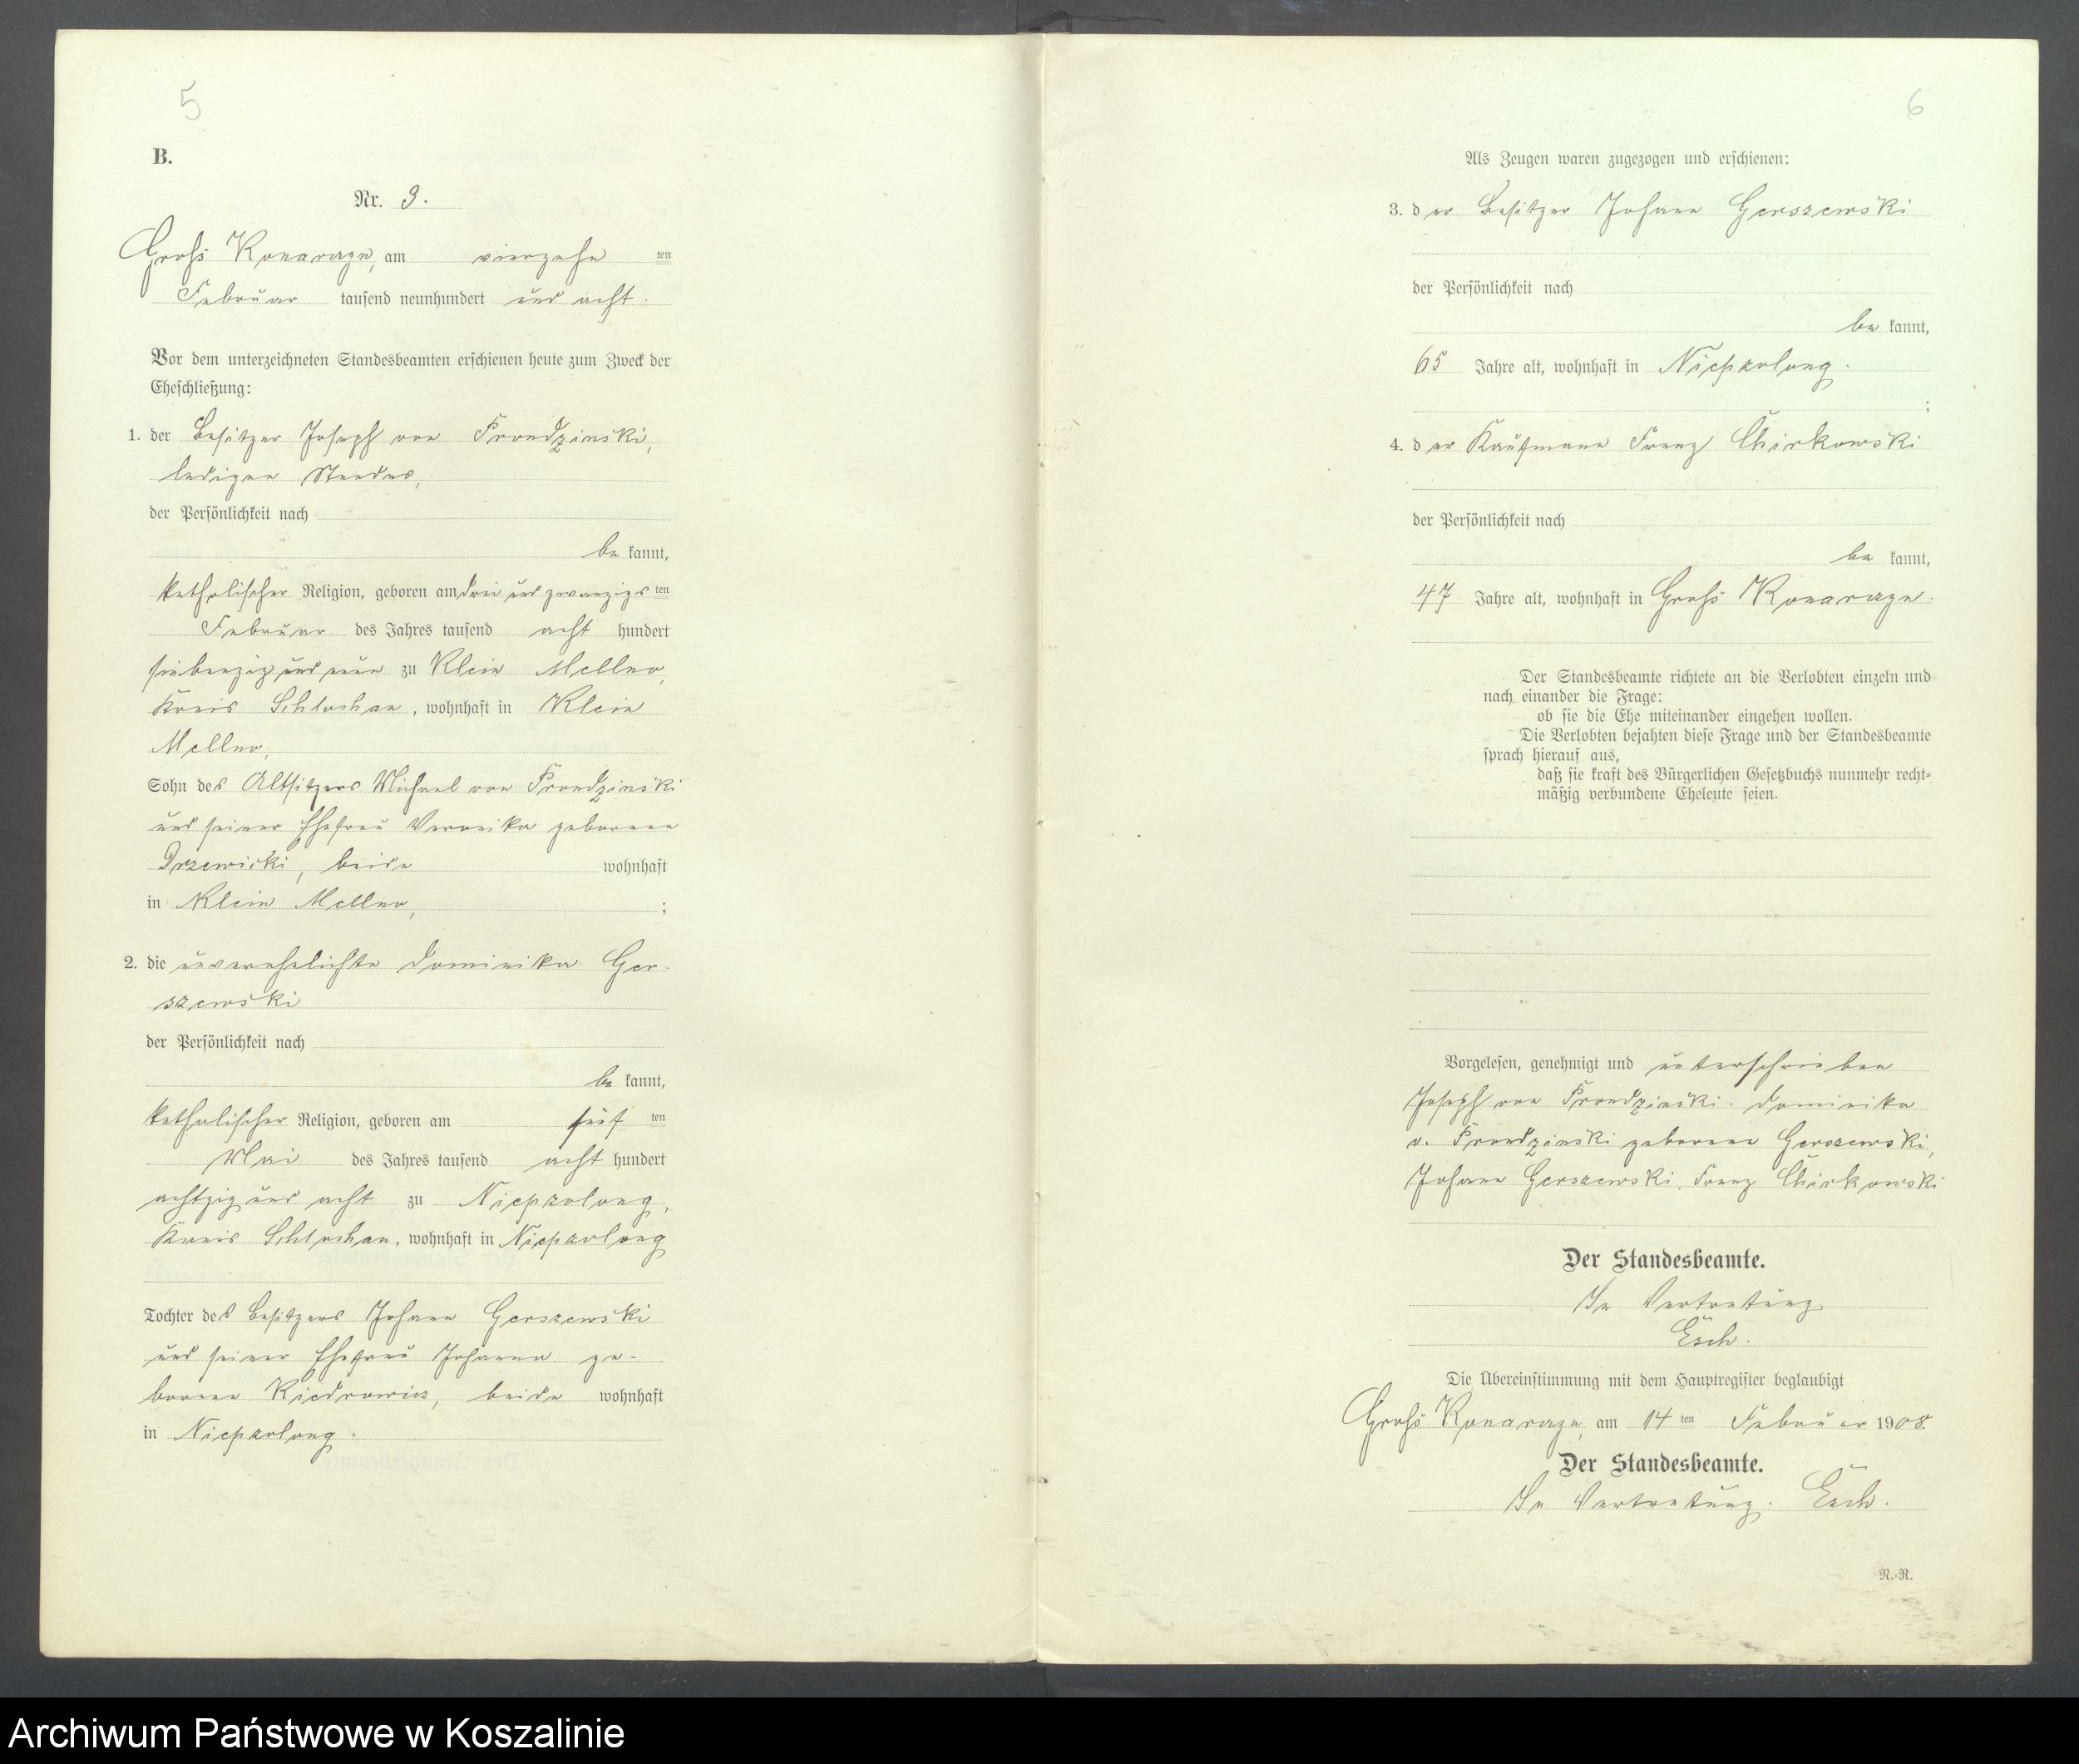 5
B.
Nr. 3.
Groß Konarczyn, am vierzehn ten
Februar tausend neunhundert und acht.
Vor dem unterzeichneten Standesbeamten erschienen heute zum Zweck der
Eheschließung:
1. der Besitzer Joseph von Prondzinski,
ledigen Standes,
der Persönlichkeit nach
be kannt,
katholischer Religion, geboren am drei und zwanzigs ten
Februar des Jahres tausend acht hundert
siebenzig und neun zu Klein Mellno,
Kreis Schlochau, wohnhaft in Klein
Mellno,
Sohn des Altsitzers Michael von Prondzinski
und seiner Ehefrau Veronika geborenen
Drzewicki, beide wohnhaft
in Klein Mellno, ;
2. die unverehelichte Dominika Ger-
szewski
der Persönlichkeit nach
be kannt,
katholischer Religion, geboren am fünf ten
Mai des Jahres tausend acht hundert
achtzig und acht zu Nieszolong,
Kreis Schlochau, wohnhaft in
Tochter des Besitzers Johann Gerszewski
und seiner Ehefrau Johanna ge-
borenen beide wohnhaft
in
6
Als Zeugen waren zugezogen und erschienen:
3. d er Besitzer Johann Gerszewski
der Persönlichkeit nach
be kannt,
65 Jahre alt, wohnhaft in
;
4. d er Kaufmann Franz Chirkowski
der Persönlichkeit nach
be kannt,
47 Jahre alt, wohnhaft in Groß Konarczyn.
Der Standesbeamte richtete an die Verlobten einzeln und
nach einander die Frage:
ob sie die Ehe miteinander eingehen wollen.
Die Verlobten bejahten diese Frage und der Standesbeamte
sprach hierauf aus,
daß sie kraft des Bürgerlichen Gesetzbuchs nunmehr recht=
mäßig verbundene Eheleute seien.
Vorgelesen, genehmigt und unterschrieben
Joseph von Prondzinski. Dominika
v. Prondzinski geborene Gerszewski,
Johann Gerszewski, Franz Chirkowski
Der Standesbeamte.
In Vertretung
Esch.
Die Übereinstimmung mit dem Hauptregister beglaubigt
Groß Konarczyn, am 14 ten Februar 1908.
Der Standesbeamte.
In Vertretung. Esch.
R.-R.
Archiwum Państwowe w Koszalinie